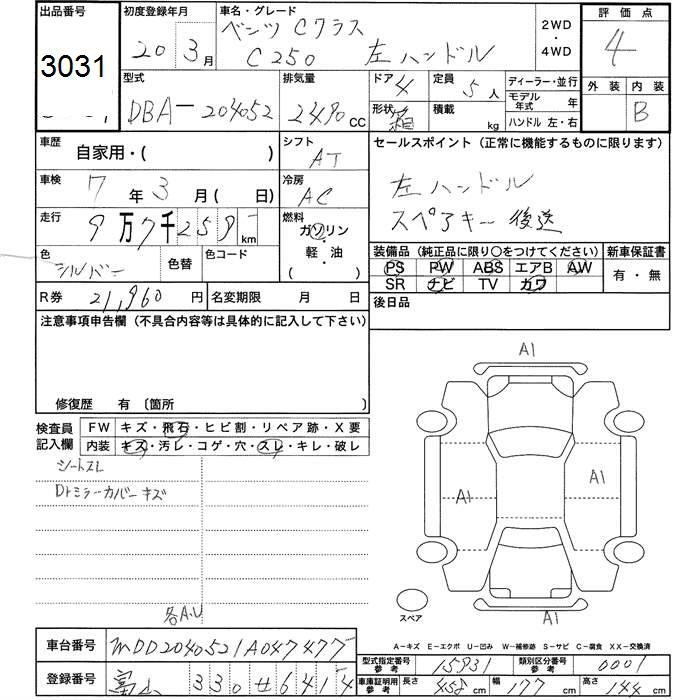 出品番号
3031
初度登録年月
20 3月
車名・グレード
ベンツ Cクラス
C250 左ハンドル
2WD
・
4WD
評価点
4
外装 内装
B
型式
DBA-204052
排気量
2490 CC
ドア 4
形状 箱
定員 5人
積載 kg
ディーラー・並行
モデル年式 年
ハンドル 左・右
車歴
自家用・( )
シフト
AT
セールスポイント (正常に機能するものに限ります)
左ハンドル
スペアキー後送
車検
7年 3月( 日)
冷房
AC
走行
9万7千259 km
燃料
ガソリン
・
軽・油
( )
色
シルバー
色替
色コード
装備品 (純正品に限り〇をつけてください)
PS PW ABS エアB AW
SR ナビ TV カワ
新車保証書
有・無
R券 21,960円
名変期限 月 日
後日品
注意事項申告欄 (不具合内容等は具体的に記入して下さい)
修復歴 有 〔箇所 〕
検査員
記入欄
FW キズ・飛石・ヒビ割・リペア跡・X要
内装 キズ・汚レ・コゲ・穴・スレ・キレ・破レ
シートスレ
Drミラーカバーキズ
各A.U
A1
A1
A1
A1
スペア
A-キズ E-エクボ U-凹み W-補修跡 S-サビ C-腐食 XX-交換済
車台番号
WDD2040521A047477
型式指定番号
参考
15931
類別区分番号
参考
0001
登録番号
富山 330 せ 6414
車庫証明用
参考
長さ 458cm 幅 177cm 高さ 144cm